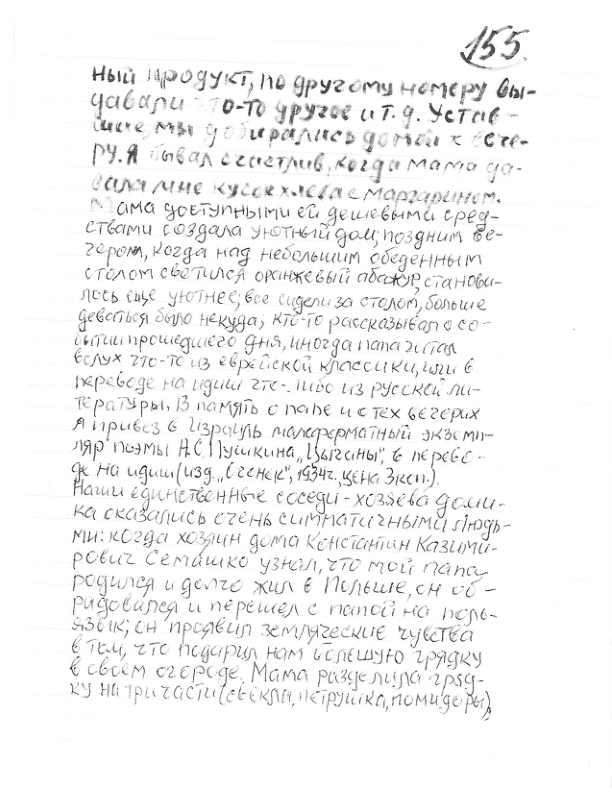 155
ный продукт, по другому номеру вы-
давали что-то другое и т.д. Устав-
шие, мы добирались домой к вече-
ру. Я бывал счастлив, когда мама да-
вала мне кусок хлеба с маргарином.
Мама доступными ей дешевыми сред-
ствами создала уютный дом; поздним ве-
чером, когда над небольшим обеденным
столом светился оранжевый абажур, станови-
лось еще уютнее; все сидели за столом, больше
деваться было некуда; кто-то рассказывал о со-
бытии прошедшего дня, иногда папа читал
вслух что-то из еврейской классики, или в
переводе на идиш что-либо из русской ли-
тературы. В память о папе и о тех вечерах
я привез в Израиль малоформатный экземп-
ляр поэмы А.С. Пушкина „Цыганы", в перево-
де на идиш (изд. „Огонек", 1934г., цена 3 коп.).
Наши единственные соседи - хозяева доми-
ка оказались очень симпатичными людь-
ми: когда хозяин дома Константин Казими-
рович Семашко узнал, что мой папа
родился и долго жил в Польше, он об-
радовался и перешел с папой на поль-
язык; он проявил земляческие чувства
в том, что подарил нам большую грядку
в своем огороде. Мама разделила гряд-
ку на три части (свекла, петрушка, помидоры),